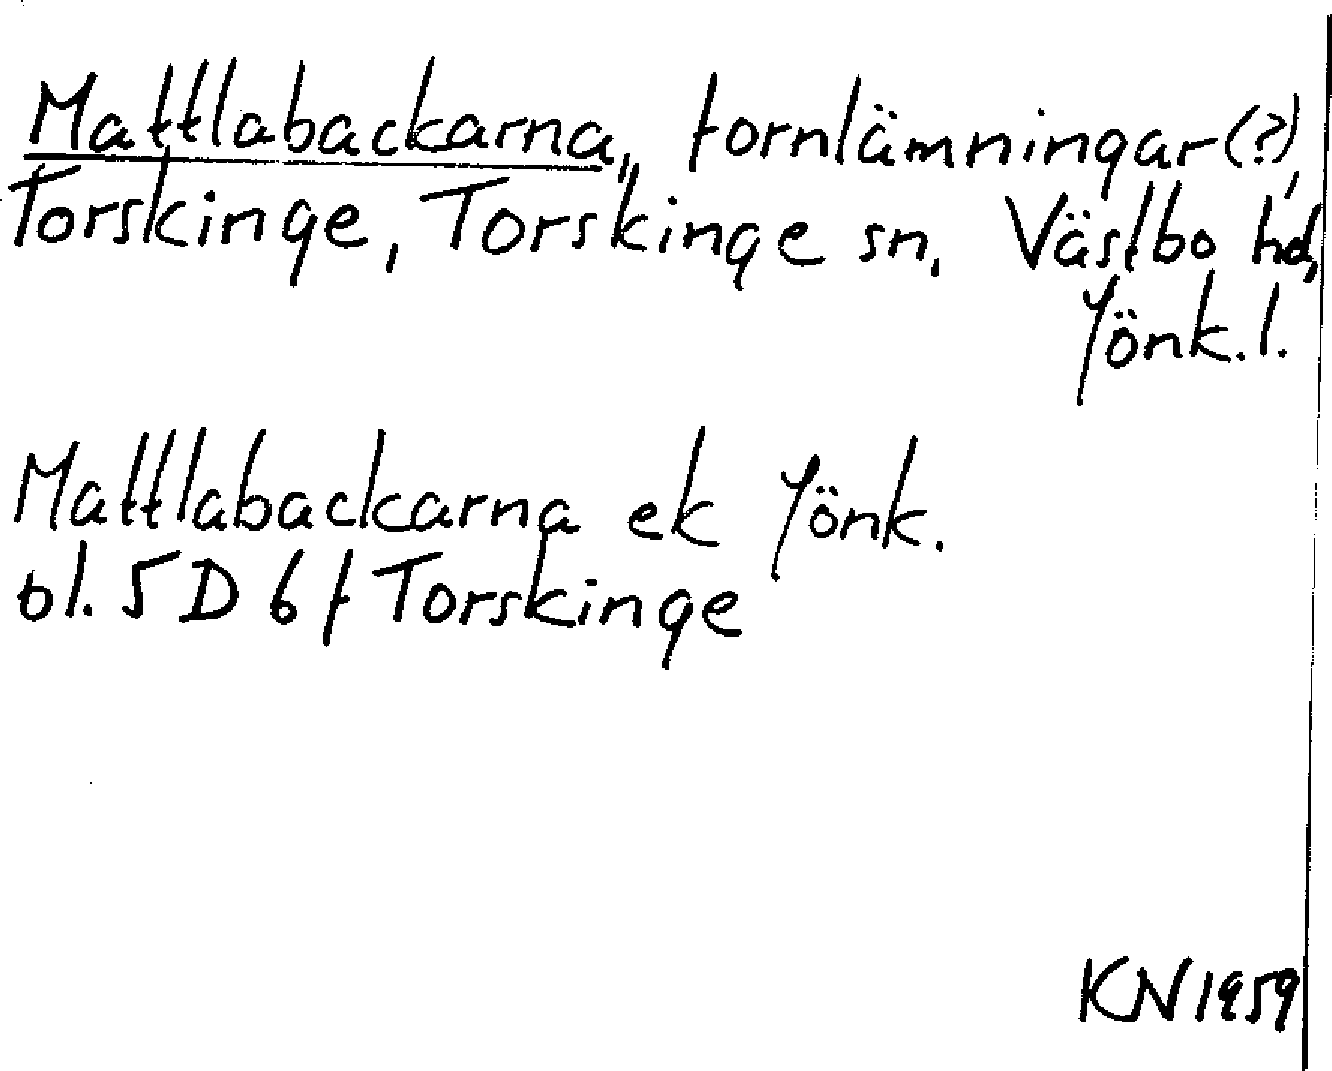 Mattlabackarna, fornlämningar(?),
Torskinge, Torskinge sn, Västbo hd,
Jönk. l.
Mattlabackarna ek Jönk.
bl. 5 D 6 f Torskinge
KN 1959